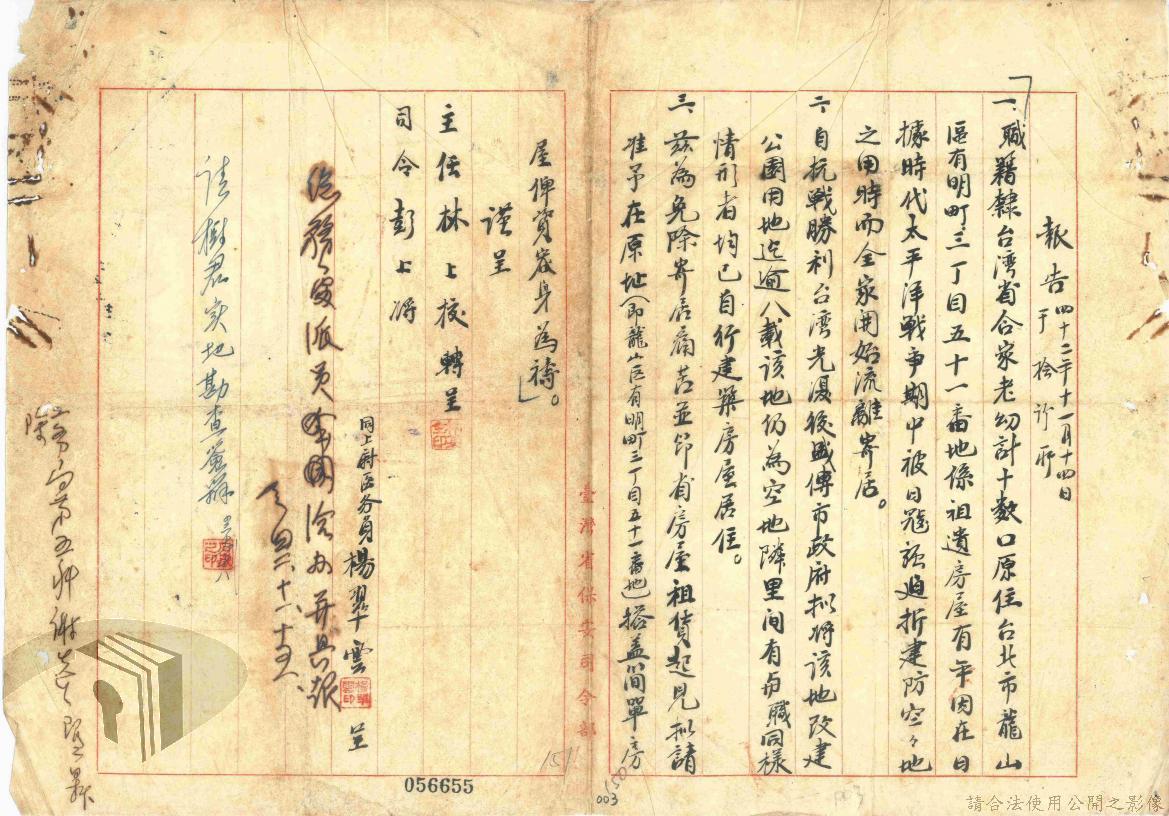 報告 四十二年十一月十四日
于
一、職籍隸台湾省合家老幼計十数口原住台北市龍山
區有明町三丁目五十一番地係祖遺房屋有年因在日
據時代太平洋戰争期中被日寇強迫拆建防空々地
之用時而全家開始流離寄居。
二、自抗戰勝利台湾光復後盛傳市政府拟将該地改建
公園用地迄逾八載該地仍為空地隣里間有与職同樣
情形者均已自行建築房屋居住。
三、茲為免除寄居痛苦並節省房屋租賃起見拟請
准予在原址(即龍山区有明町三丁目五十一番地)搭盖简單房
屋俾資容身為禱。
謹呈
主任林上校轉呈
司令彭上将
同上尉區务員楊翠雲呈
派员
請樹君实地勘查簽辦
臺灣省保安司令部
151
150
003
003
056655
請合法使用公開之影像